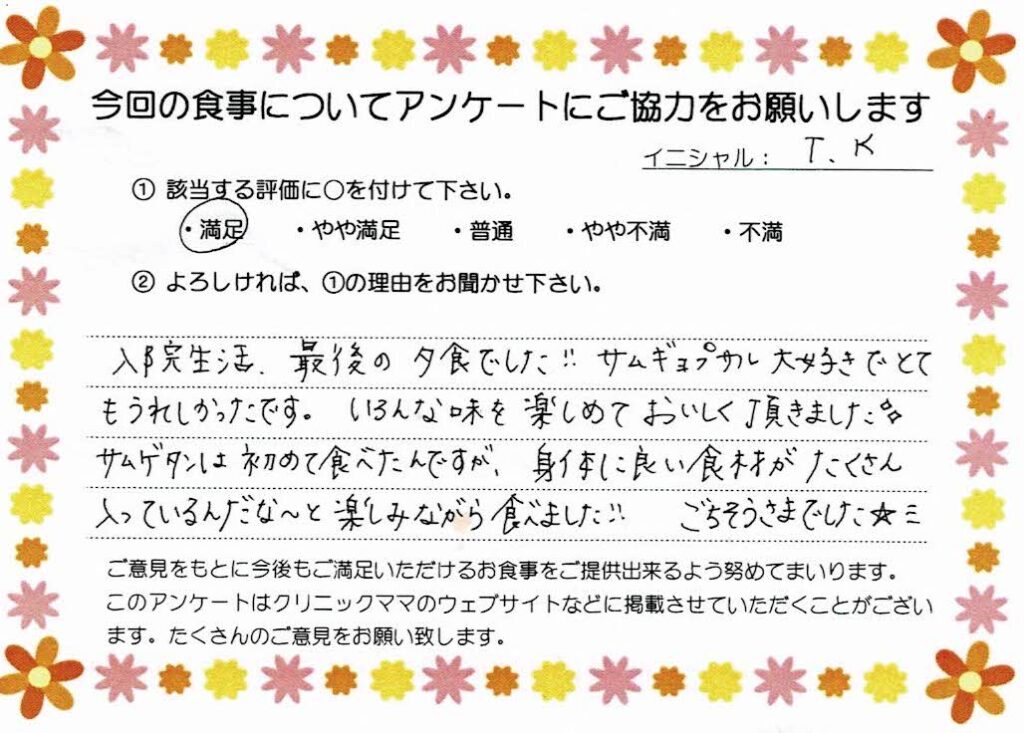 今回の食事についてアンケートにご協力をお願いします
イニシャル： T.K
① 該当する評価に○を付けて下さい。
・満足 ・やや満足 ・普通 ・やや不満 ・不満
② よろしければ、①の理由をお聞かせ下さい。
入院生活、最後の夕食でした!! サムギョプサル大好きでとて
もうれしかったです。 いろんな味を楽しめておいしく頂きました
サムゲタンは初めて食べたんですが、身体に良い食材がたくさん
入っているんだな〜と楽しみながら食べました!! ごちそうさまでした☆ミ
ご意見をもとに今後もご満足いただけるお食事をご提供出来るよう努めてまいります。
このアンケートはクリニックママのウェブサイトなどに掲載させていただくことがござい
ます。たくさんのご意見をお願い致します。